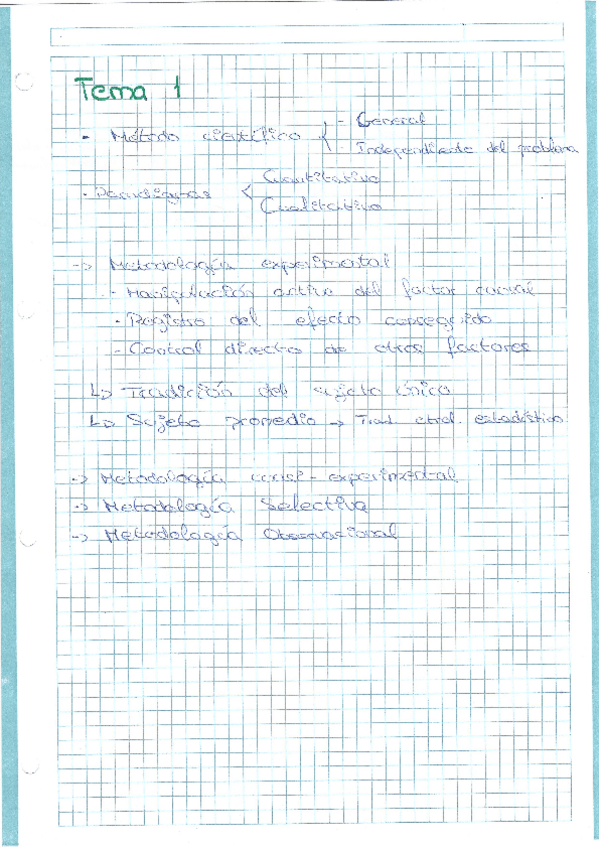 Tema 1
- General
- Método científico {
- Independiente del problema
Cuantitativo
- Paradigmas <
Cualitativo
-> Metodología experimental
- Manipulación activa del factor causal
- Registro del efecto conseguido
- Control directo de otros factores
↳ Tradición del sujeto único
↳ Sujeto promedio → Trad. ctrol. estadístico
-> Metodología cuasi-experimental
-> Metodología Selectiva
-> Metodología Observacional